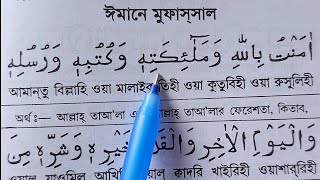 ঈমানে মুফাস্সাল
اٰمَنْتُ بِاللّٰهِ وَمَلٰٓئِكَتِهٖ وَكُتُبِهٖ وَرُسُلِهٖ
আমানতু বিল্লাহি ওয়া মালাইকাতিহী ওয়া কুতুবিহী ওয়া রুসুলিহী
অর্থ:— আল্লাহ্ তাআ'লা আল্লাহ্ তাআ'লার ফেরেশতা, কিতাব,
وَالْيَوْمِ الْاٰخِرِ وَالْقَدْرِ خَيْرِهٖ وَشَرِّهٖ مِنَ
ওয়াল ইয়াওমিল ক্বাদরি খাইরিহী ওয়াশাররিহী